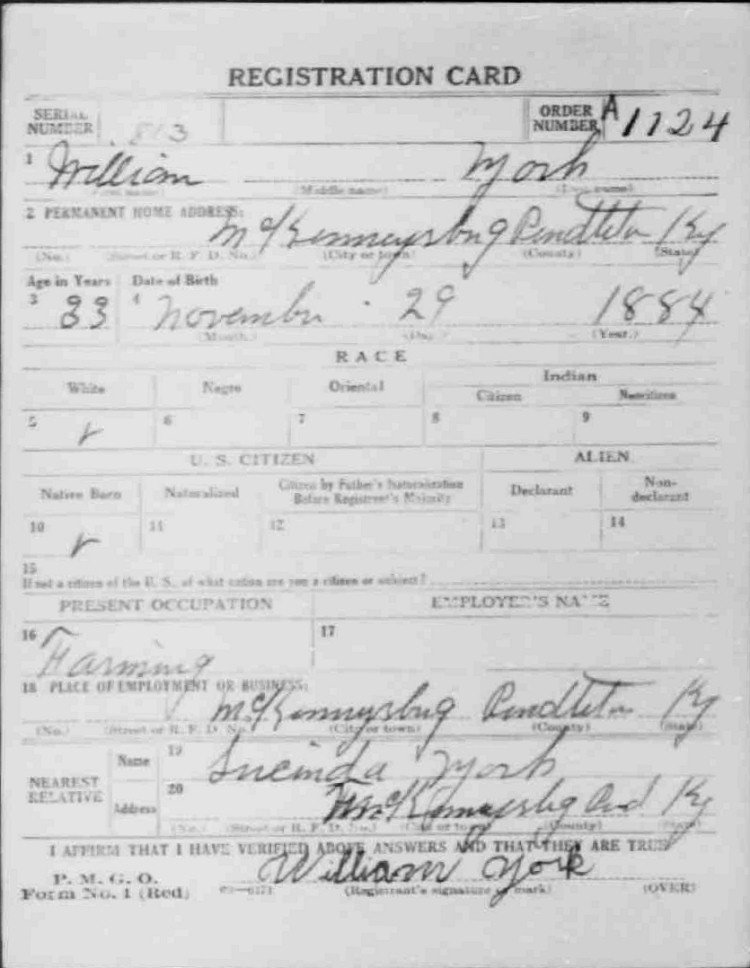 REGISTRATION CARD
SERIAL NUMBER 813 ORDER NUMBER A 1124
1 William York
(Middle name)
2 PERMANENT HOME ADDRESS:
McKenneysburg Pendleton Ky
(No.) (Street or R. F. D. No.) (City or town) (County) (State)
Age in Years Date of Birth
3 33 4 November 29 1884
(Month.) (Day.) (Year.)
RACE
White Negro Oriental Indian
Citizen Noncitizen
5 6 7 8 9
U. S. CITIZEN ALIEN
Native Born Naturalized Citizen by Father's Naturalization Before Registrant's Majority Declarant Non-declarant
10 11 12 13 14
15
If not a citizen of the U. S., of what nation are you a citizen or subject?
PRESENT OCCUPATION EMPLOYER'S NAME
16 Farming 17
18 PLACE OF EMPLOYMENT OR BUSINESS:
McKenneysburg Pendleton Ky
(No.) (Street or R. F. D. No.) (City or town) (County) (State)
NEAREST RELATIVE Name 19 Lucinda York
Address 20 McKenneysburg Pend Ky
(No.) (Street or R. F. D. No.) (City or town) (County) (State)
I AFFIRM THAT I HAVE VERIFIED ABOVE ANSWERS AND THAT THEY ARE TRUE
P. M. G. O.
Form No. 1 (Red) William York
(Registrant's signature or mark) (OVER)